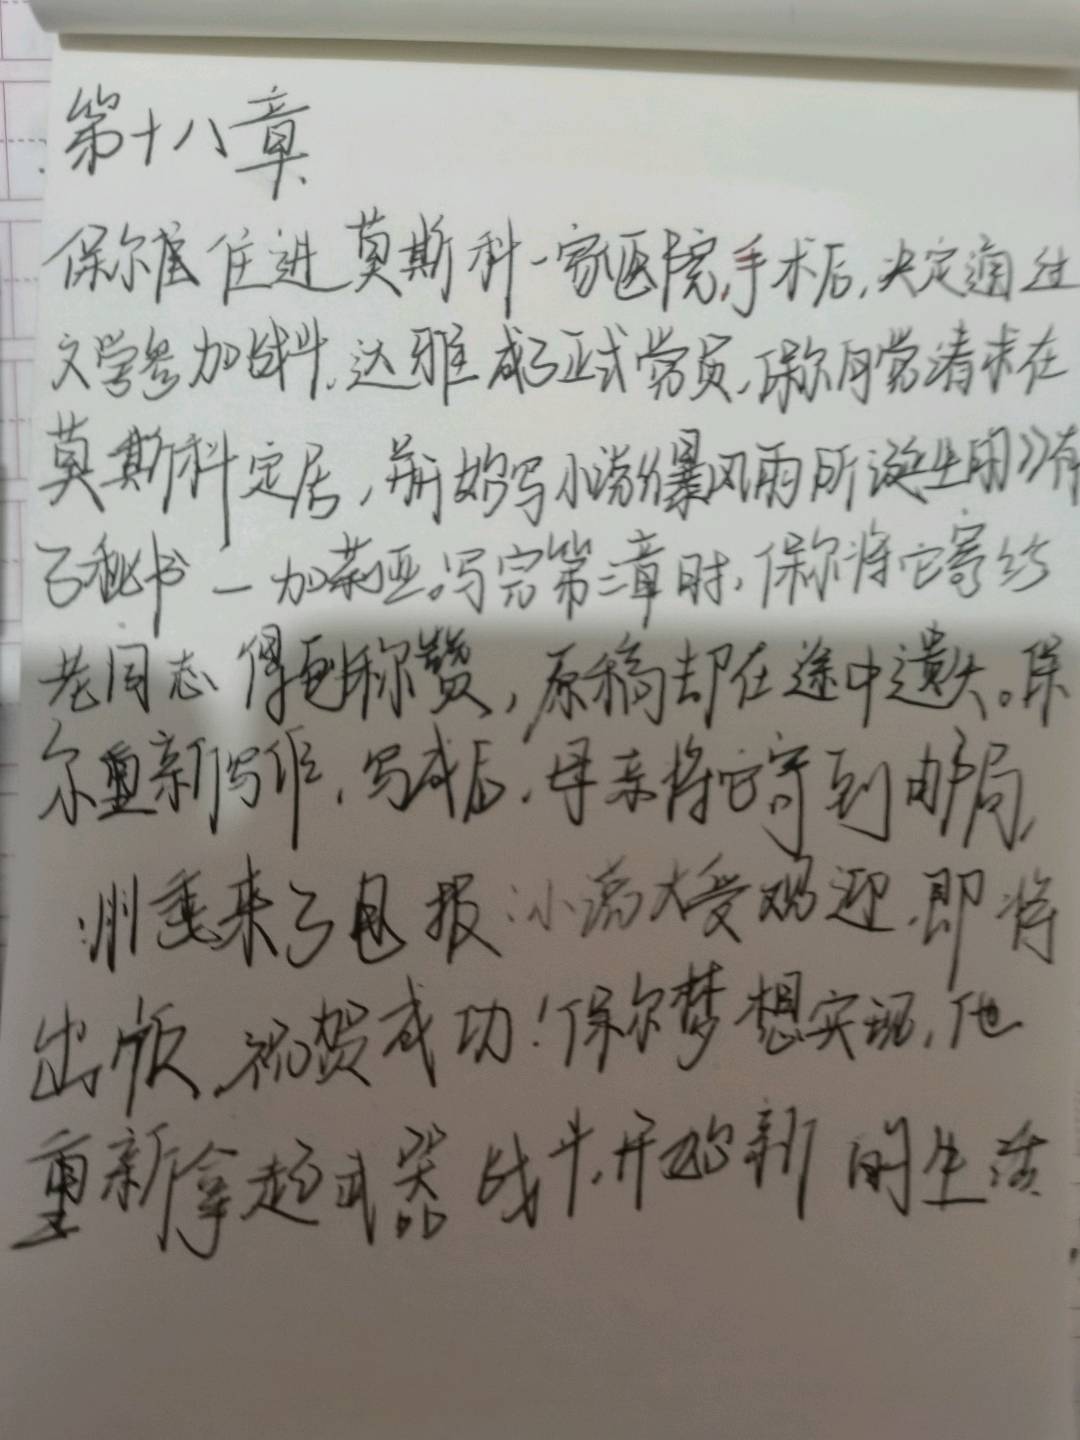 第十八章
保尔住进莫斯科一家医院,手术后,决定通过
文学参加战斗,达雅成了正式党员,保尔向党请求在
莫斯科定居,开始写小说《暴风雨所诞生的》有
了秘书一加莱亚。写完第三章时,保尔将它寄给
老同志 得到称赞,原稿却在途中遗失。保
尔重新写作,写成后,母亲将它寄到邮局,
州委来了电报:小说大受欢迎,即将
出版,祝贺成功!保尔梦想实现,他
重新拿起武器战斗,开始新的生活